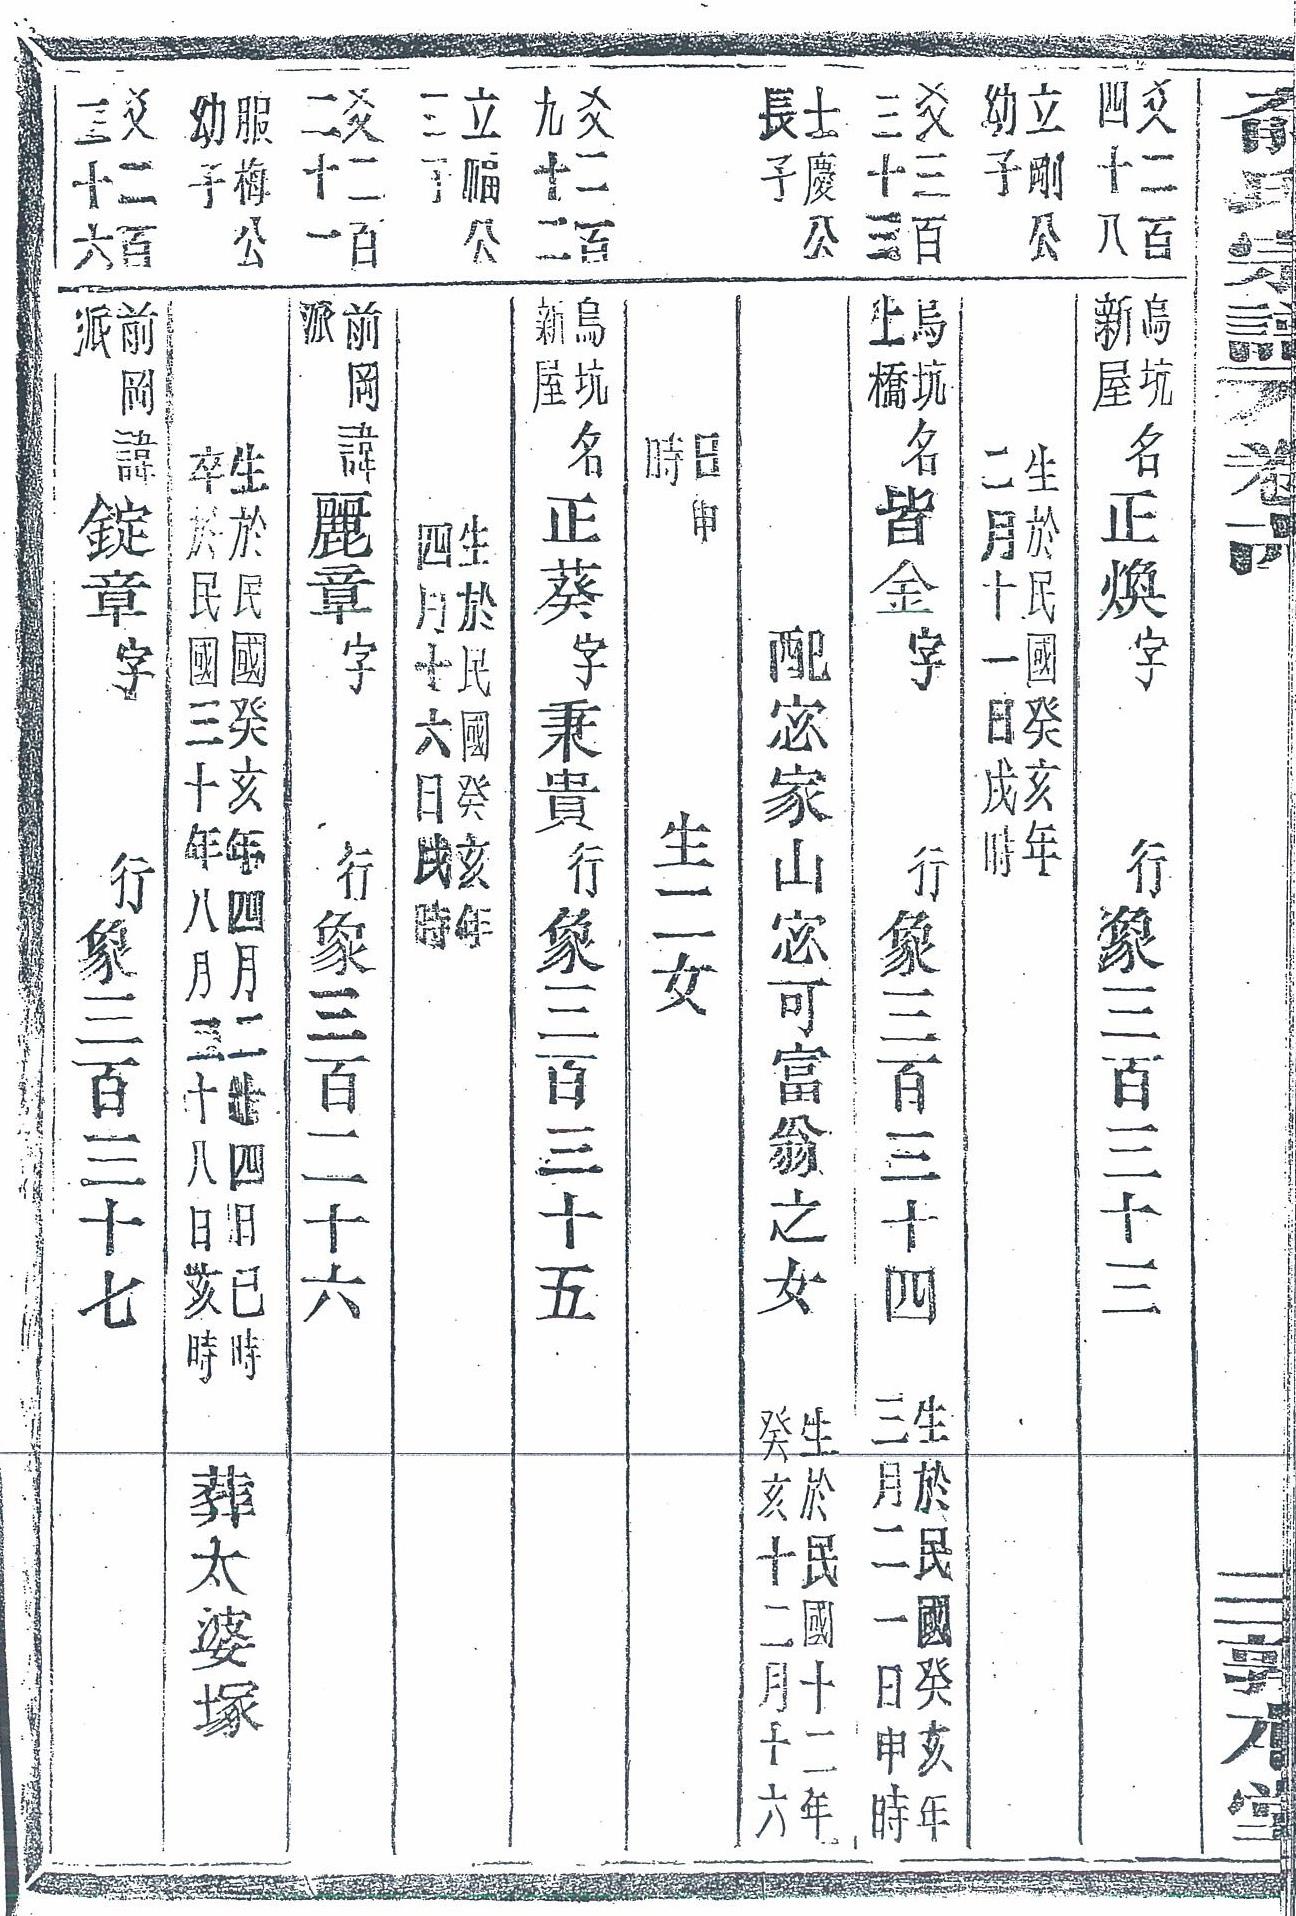 俞氏宗譜
卷六
敦本堂
爻二百
四十八
烏坑
新屋
名正煥字
行象三百三十三
立剛公
幼子
生於民國癸亥年
二月十一日戌時
爻三百
三十三
烏坑
上橋
名皆金字
行象三百三十四
生於民國癸亥年
三月二一日申時
士慶公
長子
配宓家山宓可富翁之女
生於民國十二年
癸亥十二月十六
日申
時
生二女
爻二百
九十二
烏坑
新屋
名正葵字秉貴行象三百三十五
立福公
三子
生於民國癸亥年
四月十六日戌時
爻二百
二十一
前岡
派
諱麗章字
行象三百二十六
服梅公
幼子
生於民國癸亥年四月二十四日巳時
卒於民國三十年八月二十八日亥時
葬太婆塚
爻二百
三十六
前岡
派
諱錠章字
行象三百三十七